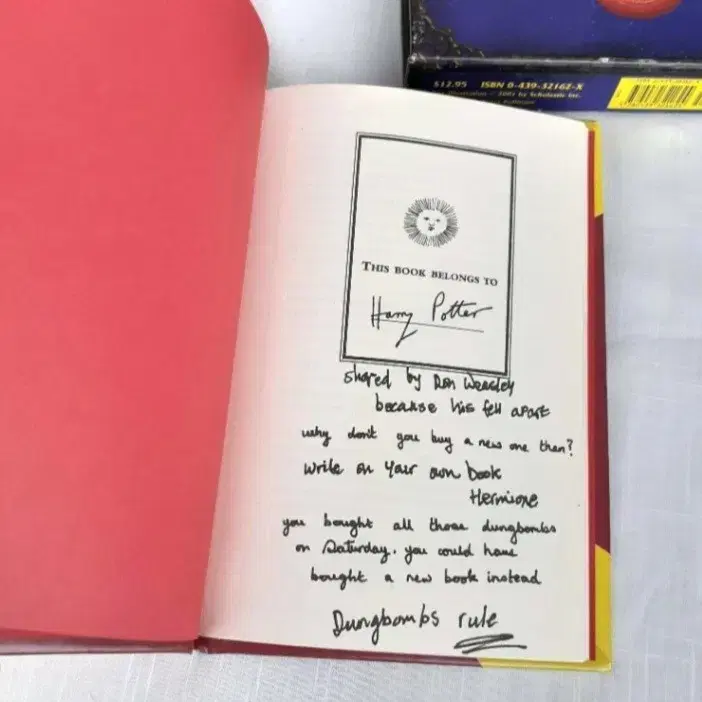 $12.95 ISBN 0-439-32162-X
2001 by Scholastic Inc.
THIS BOOK BELONGS TO
Harry Potter
shared by Ron Weasley
because his fell apart
why don't you buy a new one then?
write on your own book
Hermione
you bought all those dungbombs
on Saturday. you could have
bought a new book instead
Dungbombs rule